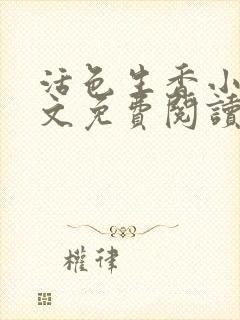 活色生香小
文免費閱讀
權律